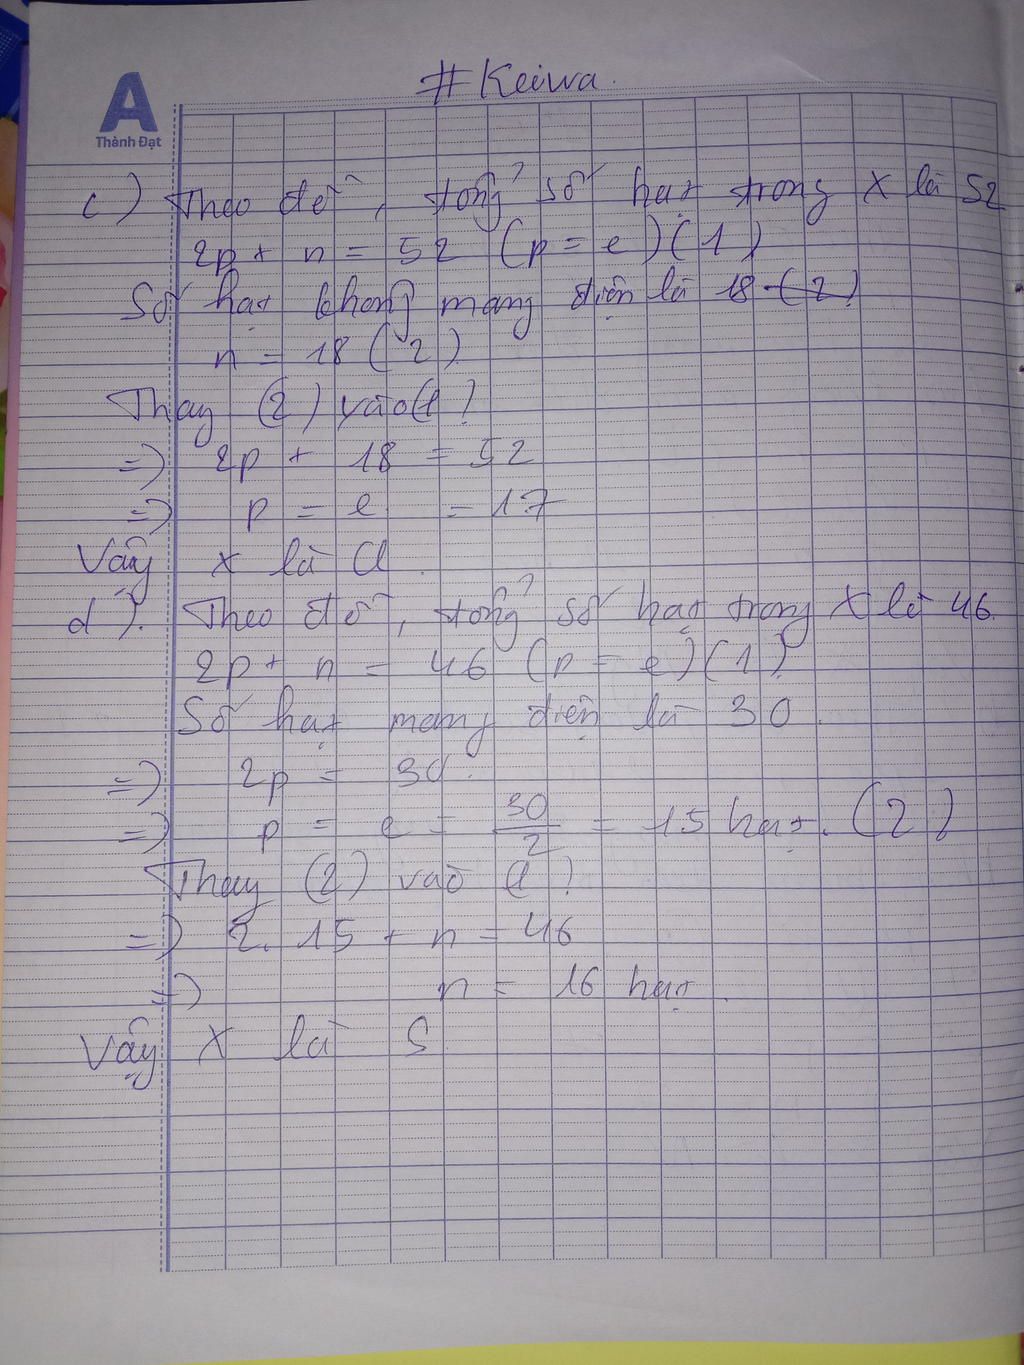 #Keiwa.
A
Thành Đạt
c) Theo đề, tổng số hạt trong X là 52
2p + n = 52 (p = e) (1)
Số hạt không mang điện là 18
n = 18 (2)
Thay (2) vào (1)
=) 2p + 18 = 52
=) p = e = 17
Vậy X là Cl.
d). Theo đề, tổng số hạt trong X là 46.
2p + n = 46 (p = e) (1)
Số hạt mang điện là 30.
=) 2p = 30.
=) p = e = 30/2 = 15 hạt. (2)
Thay (2) vào (1)
=) 2. 15 + n = 46
=) n = 16 hạt.
Vậy X là S.